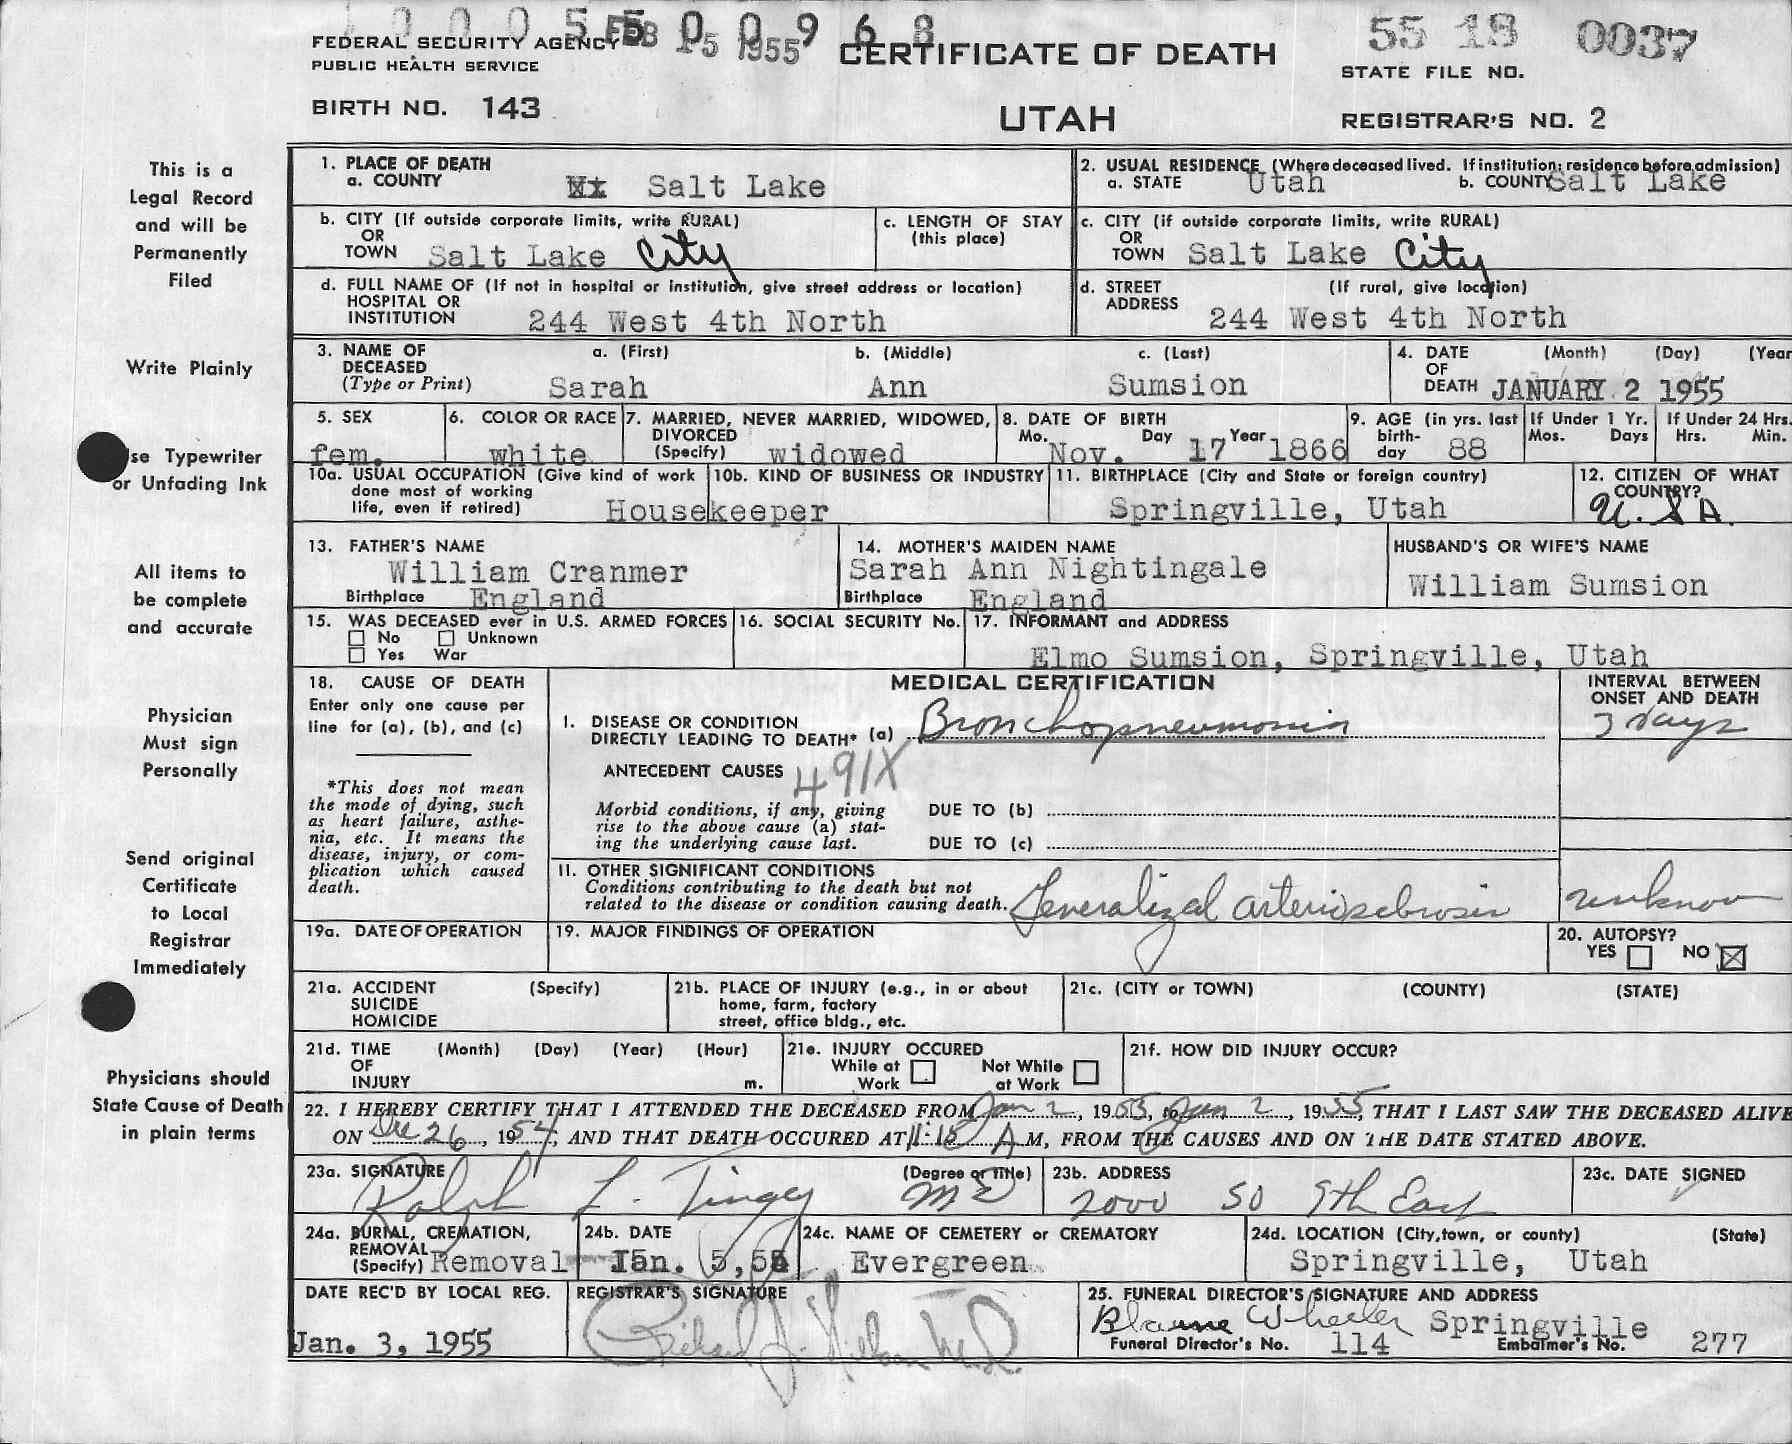 FEB 15 1955
55 18 0037
FEDERAL SECURITY AGENCY
PUBLIC HEALTH SERVICE
CERTIFICATE OF DEATH
STATE FILE NO.
BIRTH NO. 143
UTAH
REGISTRAR'S NO. 2
This is a
Legal Record
and will be
Permanently
Filed
Write Plainly
se Typewriter
or Unfading Ink
All items to
be complete
and accurate
Physician
Must sign
Personally
Send original
Certificate
to Local
Registrar
Immediately
Physicians should
State Cause of Death
in plain terms
1. PLACE OF DEATH
a. COUNTY Salt Lake
2. USUAL RESIDENCE (Where deceased lived. If institution: residence before admission)
a. STATE Utah b. COUNTY Salt Lake
b. CITY (If outside corporate limits, write RURAL)
OR
TOWN Salt Lake City
c. LENGTH OF STAY
(this place)
c. CITY (if outside corporate limits, write RURAL)
OR
TOWN Salt Lake City
d. FULL NAME OF (If not in hospital or institution, give street address or location)
HOSPITAL OR
INSTITUTION 244 West 4th North
d. STREET (If rural, give location)
ADDRESS 244 West 4th North
3. NAME OF a. (First) b. (Middle) c. (Last)
DECEASED
(Type or Print) Sarah Ann Sumsion
4. DATE (Month) (Day) (Year
OF
DEATH JANUARY 2 1955
5. SEX
fem.
6. COLOR OR RACE
white
7. MARRIED, NEVER MARRIED, WIDOWED,
DIVORCED
(Specify) widowed
8. DATE OF BIRTH
Mo. Day Year
Nov. 17 1866
9. AGE (in yrs. last
birth-
day 88
If Under 1 Yr.
Mos. Days
If Under 24 Hrs.
Hrs. Min.
10a. USUAL OCCUPATION (Give kind of work
done most of working
life, even if retired) Housekeeper
10b. KIND OF BUSINESS OR INDUSTRY
11. BIRTHPLACE (City and State or foreign country)
Springville, Utah
12. CITIZEN OF WHAT
COUNTRY?
U.S.A.
13. FATHER'S NAME
William Cranmer
Birthplace England
14. MOTHER'S MAIDEN NAME
Sarah Ann Nightingale
Birthplace England
HUSBAND'S OR WIFE'S NAME
William Sumsion
15. WAS DECEASED ever in U.S. ARMED FORCES
No Unknown
Yes War
16. SOCIAL SECURITY No.
17. INFORMANT and ADDRESS
Elmo Sumsion, Springville, Utah
18. CAUSE OF DEATH
Enter only one cause per
line for (a), (b), and (c)
*This does not mean
the mode of dying, such
as heart failure, asthe-
nia, etc. It means the
disease, injury, or com-
plication which caused
death.
MEDICAL CERTIFICATION
INTERVAL BETWEEN
ONSET AND DEATH
1. DISEASE OR CONDITION
DIRECTLY LEADING TO DEATH* (a) Bronchopneumonia 3 days
ANTECEDENT CAUSES 491X
Morbid conditions, if any, giving
rise to the above cause (a) stat-
ing the underlying cause last.
DUE TO (b)
DUE TO (c)
11. OTHER SIGNIFICANT CONDITIONS
Conditions contributing to the death but not
related to the disease or condition causing death. Generalized arteriosclerosis unknown
19a. DATE OF OPERATION
19. MAJOR FINDINGS OF OPERATION
20. AUTOPSY?
YES NO ☒
21a. ACCIDENT (Specify)
SUICIDE
HOMICIDE
21b. PLACE OF INJURY (e.g., in or about
home, farm, factory
street, office bldg., etc.
21c. (CITY or TOWN) (COUNTY) (STATE)
21d. TIME (Month) (Day) (Year) (Hour)
OF
INJURY m.
21e. INJURY OCCURED
While at Not While
Work at Work
21f. HOW DID INJURY OCCUR?
22. I HEREBY CERTIFY THAT I ATTENDED THE DECEASED FROM Jan 2, 1955, to Jan 2, 1955, THAT I LAST SAW THE DECEASED ALIVE
ON Dec 26, 1954, AND THAT DEATH OCCURED AT 11:15 A M, FROM THE CAUSES AND ON THE DATE STATED ABOVE.
23a. SIGNATURE (Degree or title)
Ralph L. Tingey MD
23b. ADDRESS
2000 SO 9th East
23c. DATE SIGNED
24a. BURIAL, CREMATION,
REMOVAL
(Specify) Removal
24b. DATE
Jan. 5, 55
24c. NAME OF CEMETERY or CREMATORY
Evergreen
24d. LOCATION (City, town, or county) (State)
Springville, Utah
DATE REC'D BY LOCAL REG.
Jan. 3, 1955
REGISTRAR'S SIGNATURE
Richard
25. FUNERAL DIRECTOR'S SIGNATURE AND ADDRESS
Wheeler Springville
Funeral Director's No. 114 Embalmer's No. 277